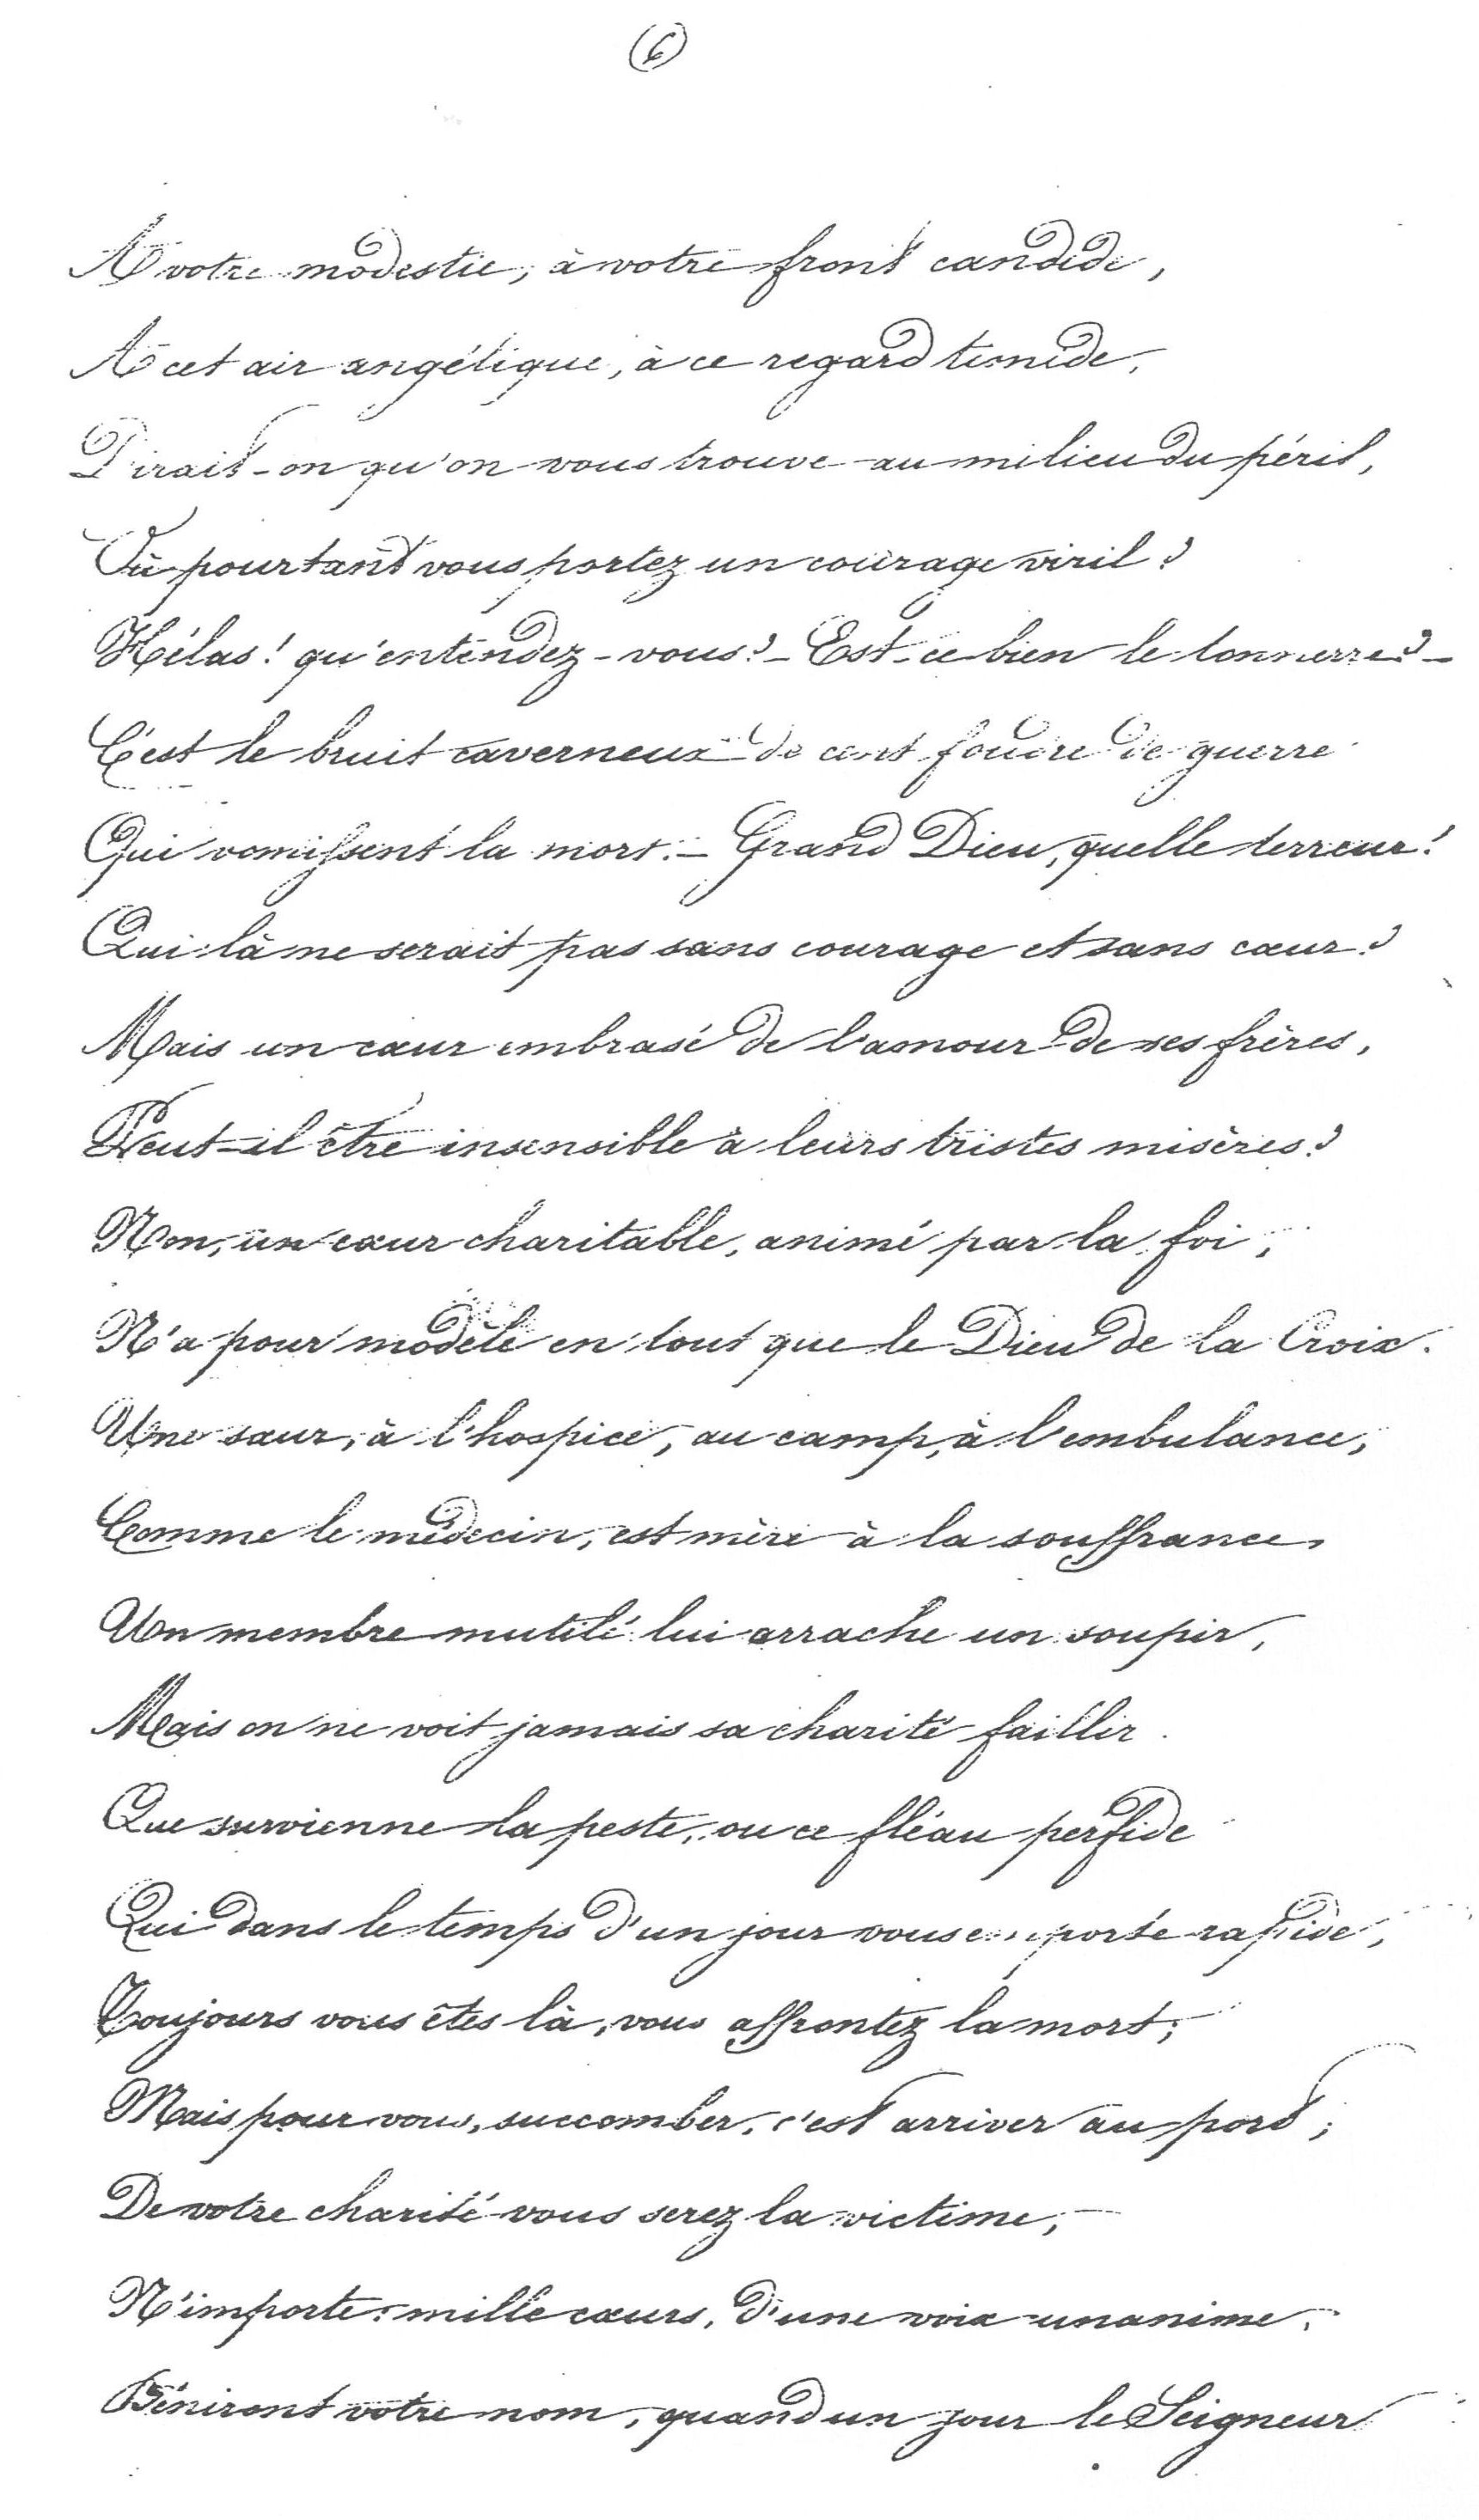 (6)
A votre modestie, à votre front candide,
A cet air angélique, à ce regard timide,
Dirait-on qu'on vous trouve au milieu du péril,
Où pourtant vous portez un courage viril?
Hélas! qu'entendez-vous? — Est-ce bien le tonnerre? —
C'est le bruit caverneux de cent foudre de guerre
Qui vomissent la mort. — Grand Dieu, quelle terreur!
Qui là ne serait pas sans courage et sans cœur?
Mais un cœur embrasé de l'amour de ses frères,
Peut-il être insensible à leurs tristes misères?
Non, un cœur charitable, animé par la foi,
N'a pour modèle en tout que le Dieu de la Croix.
Une sœur, à l'hospice, au camp, à l'embulance,
Comme le médecin, est mère à la souffrance,
Un membre mutilé lui arrache un soupir,
Mais on ne voit jamais sa charité faillir.
Que survienne la peste, ou ce fléau perfide
Qui dans le temps d'un jour vous emporte rapide,
Toujours vous êtes là, vous affrontez la mort;
Mais pour vous, succomber, c'est arriver au port;
De votre charité vous serez la victime,
N'importe: mille cœurs, d'une voix unanime,
Béniront votre nom, quand un jour le Seigneur